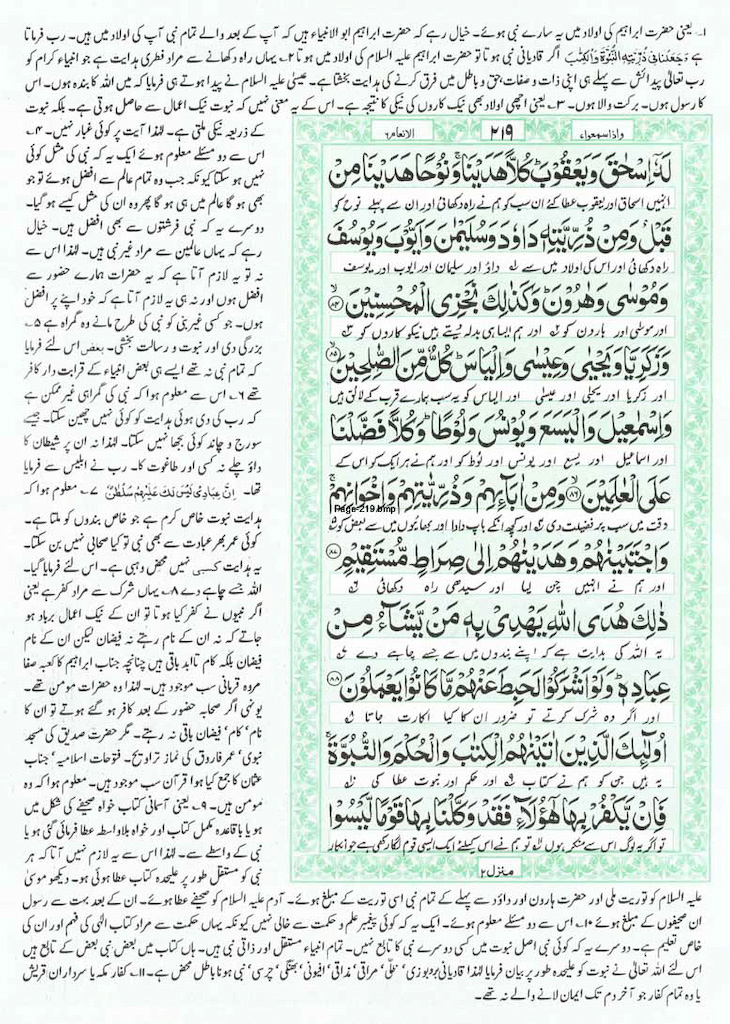 ۱۔ یعنی حضرت ابراہیم کی اولاد میں یہ سارے نبی ہوئے۔ خیال رہے کہ حضرت ابراہیم ابو الانبیاء ہیں کہ آپ کے بعد والے تمام نبی آپ کی اولاد میں ہیں۔ رب فرماتا
ہے وَجَعَلْنَا فِیْ ذُرِّیَّتِهِ النُّبُوَّةَ وَالْکِتٰبَ اگر قادیانی نبی ہوتا تو حضرت ابراہیم علیہ السلام کی اولاد میں ہوتا ۲۔ یہاں راہ دکھانے سے مراد فطری ہدایت ہے جو انبیاء کرام کو
رب تعالیٰ پیدائش سے پہلے ہی اپنی ذات و صفات حق و باطل میں فرق کرنے کی ہدایت بخشتا ہے۔ عیسیٰ علیہ السلام نے پیدا ہوتے ہی فرمایا کہ میں اللہ کا بندہ ہوں۔ اس
کا رسول ہوں۔ برکت والا ہوں۔ ۳۔ یعنی اچھی اولاد بھی نیک کاروں کی نیکی کا نتیجہ ہے۔ اس کے یہ معنی نہیں کہ نبوت نیک اعمال سے حاصل ہوتی ہے۔ بلکہ نبوت
کے ذریعہ نیکی ملتی ہے۔ لہٰذا آیت پر کوئی غبار نہیں۔ ۴۔
اس سے دو مسئلے معلوم ہوئے ایک یہ کہ نبی کی مثل کوئی
نہیں ہو سکتا کیونکہ جب وہ تمام عالم سے افضل ہوئے تو جو
بھی ہو گا عالم میں ہی ہو گا پھر وہ ان کی مثل کیسے ہو گا۔
دوسرے یہ کہ نبی فرشتوں سے بھی افضل ہیں۔ خیال
رہے کہ یہاں عالمین سے مراد غیر نبی ہیں۔ لہٰذا اس سے
نہ تو یہ لازم آتا ہے کہ یہ حضرات ہمارے حضور سے
افضل ہوں اور نہ ہی یہ لازم آتا ہے کہ خود اپنے پر افضل
ہوں۔ جو کسی غیر نبی کو نبی کی طرح مانے وہ گمراہ ہے ۵۔
بزرگی دی اور نبوت و رسالت بخشی۔ بعض اس لئے فرمایا
کہ تمام نبی نہ تھے ایسے ہی بعض انبیاء کے قرابت دار کافر
تھے ۶۔ اس سے معلوم ہوا کہ نبی کی گمراہی غیر ممکن ہے
کہ رب کی دی ہوئی ہدایت کو کوئی نہیں چھین سکتا۔ جیسے
سورج و چاند کوئی بجھا نہیں سکتا۔ لہٰذا نہ ان پر شیطان کا
داؤ چلے نہ کسی اور طاغوت کا۔ رب نے ابلیس سے فرمایا
تھا۔ اِنَّ عِبَادِیْ لَیْسَ لَكَ عَلَیْهِمْ سُلْطٰنٌ ۷۔ معلوم ہوا کہ
ہدایت نبوت خاص کرم ہے جو خاص بندوں کو ملتا ہے۔
کوئی عمر بھر عبادت سے بھی نبی تو کیا صحابی نہیں بن سکتا۔
یہ ہدایت کسبی نہیں محض وہبی ہے۔ اس لئے فرمایا گیا۔
اللہ جسے چاہے دے ۸۔ یہاں شرک سے مراد کفر ہے یعنی
اگر نبیوں نے کفر کیا ہوتا تو ان کے نیک اعمال برباد ہو
جاتے کہ نہ ان کے نام رہتے نہ فیضان لیکن ان کے نام
فیضان بلکہ کام تا ابد باقی ہیں چنانچہ جناب ابراہیم کا کعبہ صفا
مروہ قربانی سب موجود ہیں۔ لہٰذا وہ حضرات مومن تھے۔
یونہی اگر صحابہ حضور کے بعد کافر ہو گئے ہوتے تو ان کا
نام، کام، فیضان باقی نہ رہتے۔ مگر حضرت صدیق کی مسجد
نبوی، عمر فاروق کی نماز تراویح۔ فتوحات اسلامیہ، جناب
عثمان کا جمع کیا ہوا قرآن سب موجود ہیں۔ معلوم ہوا کہ وہ
مومن ہیں۔ ۹۔ یعنی آسمانی کتاب خواہ صحیفے کی شکل میں
ہو یا باقاعدہ مکمل کتاب اور خواہ بلاواسطہ عطا فرمائی گئی ہو یا
نبی کے واسطے سے۔ لہٰذا اس سے یہ لازم نہیں آتا کہ ہر
نبی کو مستقل طور پر علیحدہ کتاب عطا ہوئی ہو۔ دیکھو موسیٰ
واذاسمعوا۷
۲۱۹
الانعام۶
لَهٗۤ اِسْحٰقَ وَ یَعْقُوْبَؕ كُلًّا هَدَیْنَاۚ وَ نُوْحًا هَدَیْنَا مِنْ
انہیں اسحاق اور یعقوب عطا کئے ان سب کو ہم نے راہ دکھائی اور ان سے پہلے نوح کو
قَبْلُ وَ مِنْ ذُرِّیَّتِهٖ دَاوٗدَ وَ سُلَیْمٰنَ وَ اَیُّوْبَ وَ یُوْسُفَ
راہ دکھائی اور اس کی اولاد میں سے داؤد اور سلیمان اور ایوب اور یوسف
وَ مُوْسٰى وَ هٰرُوْنَؕ وَ كَذٰلِكَ نَجْزِی الْمُحْسِنِیْنَۙ۝۸۴
اور موسیٰ اور ہارون کو اور ہم ایسا ہی بدلہ دیتے ہیں نیکو کاروں کو
وَ زَكَرِیَّا وَ یَحْیٰى وَ عِیْسٰى وَ اِلْیَاسَؕ كُلٌّ مِّنَ الصّٰلِحِیْنَۙ۝۸۵
اور زکریا اور یحییٰ اور عیسیٰ اور الیاس کو یہ سب ہمارے قرب کے لائق ہیں
وَ اِسْمٰعِیْلَ وَ الْیَسَعَ وَ یُوْنُسَ وَ لُوْطًاؕ وَ كُلًّا فَضَّلْنَا
اور اسماعیل اور یسع اور یونس اور لوط کو اور ہم نے ہر ایک کو اس کے
عَلَى الْعٰلَمِیْنَۙ۝۸۶ وَ مِنْ اٰبَآىٕهِمْ وَ ذُرِّیّٰتِهِمْ وَ اِخْوَانِهِمْۚ
Page-219.bmp
وقت میں سب پر فضیلت دی اور کچھ انکے باپ دادا اور اولاد اور بھائیوں میں سے بعض کو
وَ اجْتَبَیْنٰهُمْ وَ هَدَیْنٰهُمْ اِلٰى صِرَاطٍ مُّسْتَقِیْمٍ۝۸۷
اور ہم نے انہیں چن لیا اور سیدھی راہ دکھائی
ذٰلِكَ هُدَى اللّٰهِ یَهْدِیْ بِهٖ مَنْ یَّشَآءُ مِنْ
یہ اللہ کی ہدایت ہے کہ اپنے بندوں میں سے جسے چاہے دے
عِبَادِهٖؕ وَ لَوْ اَشْرَكُوْا لَحَبِطَ عَنْهُمْ مَّا كَانُوْا یَعْمَلُوْنَ۝۸۸
اور اگر وہ شرک کرتے تو ضرور ان کا کیا اکارت جاتا
اُولٰٓىٕكَ الَّذِیْنَ اٰتَیْنٰهُمُ الْكِتٰبَ وَ الْحُكْمَ وَ النُّبُوَّةَۚ
یہ ہیں جن کو ہم نے کتاب اور حکم اور نبوت عطا کی
فَاِنْ یَّكْفُرْ بِهَا هٰۤؤُلَآءِ فَقَدْ وَكَّلْنَا بِهَا قَوْمًا لَّیْسُوْا
تو اگر یہ لوگ اس سے منکر ہوں تو ہم نے اس کیلئے ایک ایسی قوم لگا رکھی ہے جو انکار
منزل۲
علیہ السلام کو توریت ملی اور حضرت ہارون اور داؤد سے پہلے کے تمام نبی اسی توریت کے مبلغ ہوئے۔ آدم علیہ السلام کو صحیفے عطا ہوئے۔ ان کے بعد بہت سے رسول
ان صحیفوں کے مبلغ ہوئے ۱۰۔ اس سے دو مسئلے معلوم ہوئے۔ ایک یہ کہ کوئی پیغمبر علم و حکمت سے خالی نہیں کیونکہ یہاں حکمت سے مراد کتاب الٰہی کی فہم اور ان کی
خاص تعلیم ہے۔ دوسرے یہ کہ کوئی نبی اصل نبوت میں کسی دوسرے نبی کا تابع نہیں۔ تمام انبیاء مستقل اور ذاتی نبی ہیں۔ ہاں کتاب میں بعض نبی بعض کے تابع ہیں
اس لئے اللہ تعالیٰ نے نبوت کو علیحدہ طور پر بیان فرمایا لہٰذا قادیانی بروزی، ظلی، مراقی، مذاقی، افیونی، بھنگی، چرسی، نبی ہونا باطل محض ہے۔ ۱۱۔ کفار مکہ یا سرداران قریش
یا وہ تمام کفار جو آخر دم تک ایمان لانے والے نہ تھے۔